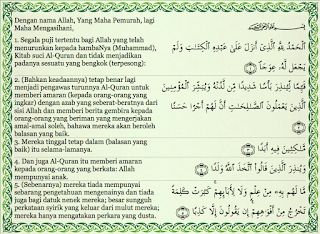 Dengan nama Allah, Yang Maha Pemurah, lagi
Maha Mengasihani,
1. Segala puji tertentu bagi Allah yang telah
menurunkan kepada hambaNya (Muhammad),
Kitab suci Al-Quran dan tidak menjadikan
padanya sesuatu yang bengkok (terpesong):
2. (Bahkan keadaannya) tetap benar lagi
menjadi pengawas turunnya Al-Quran untuk
memberi amaran (kepada orang-orang yang
ingkar) dengan azab yang seberat-beratnya dari
sisi Allah dan memberi berita gembira kepada
orang-orang yang beriman yang mengerjakan
amal-amal soleh, bahawa mereka akan beroleh
balasan yang baik.
3. Mereka tinggal tetap dalam (balasan yang
baik) itu selama-lamanya.
4. Dan juga Al-Quran itu memberi amaran
kepada orang-orang yang berkata: Allah
mempunyai anak.
5. (Sebenarnya) mereka tiada mempunyai
sebarang pengetahuan mengenainya dan tiada
juga bagi datuk nenek mereka; besar sungguh
perkataan syirik yang keluar dari mulut mereka;
mereka hanya mengatakan perkara yang dusta.
الْحَمْدُ لِلَّهِ الَّذِي أَنْزَلَ عَلَى عَبْدِهِ الْكِتَٰبَ وَلَمْ
يَجْعَلْ لَهُ عِوَجًا
قَيِّمًا لِيُنْذِرَ بَأْسًا شَدِيدًا مِنْ لَدُنْهُ وَيُبَشِّرَ الْمُؤْمِنِينَ
الَّذِينَ يَعْمَلُونَ الصَّٰلِحَٰتِ أَنَّ لَهُمْ أَجْرًا حَسَنًا
مَٰكِثِينَ فِيهِ أَبَدًا
وَيُنْذِرَ الَّذِينَ قَالُوا اتَّخَذَ اللَّهُ وَلَدًا
مَا لَهُمْ بِهِ مِنْ عِلْمٍ وَلَا لِأَبَائِهِمْ كَبُرَتْ كَلِمَةً
تَخْرُجُ مِنْ أَفْوَاهِهِمْ إِنْ يَقُولُونَ إِلَّا كَذِبًا